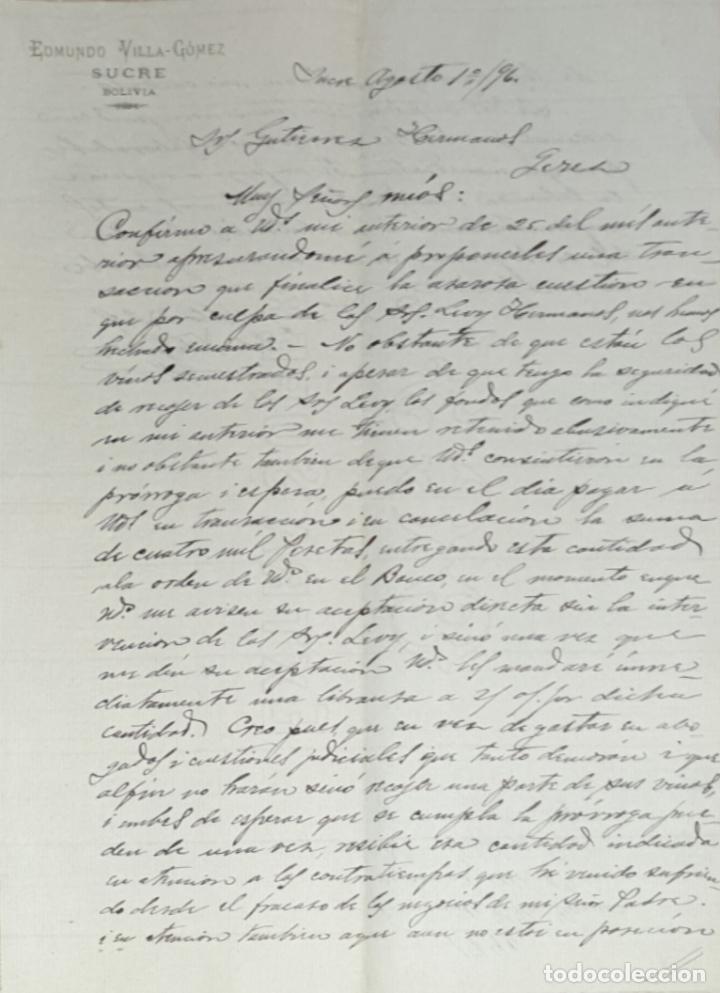 EDMUNDO VILLA-GÓMEZ
SUCRE
BOLIVIA
Sucre Agosto 1º/96.
Srs. Gutierrez Hermanos
Jerez
Muy Señores mios:
Confirmo a Uds. mi anterior de 25 del mil ante
rior apresurandomé á proponerles una tran
saccion que finalice la azarosa cuestion en
que por culpa de los Srs. Levy Hermanos, nos hemos
hechado encima. - No obstante de que están los
vinos secuestrados, i apesar de que tengo la seguridad
de recojer de los Srs Levy los fondos que como indiqué
en mi anterior me tienen retenido abusivamente
i no obstante tambien de que Uds. consintieron en la
prórroga i espera, puedo en el dia pagar á
Uds en transacción i en cancelación la suma
de cuatro mil Pesetas, entregando esta cantidad
a la orden de Uds. en el Banco, en el momento enque
Uds. me avisen su aceptación directa sin la inter
vencion de los Srs. Levy, i sinó una vez que
me dén su aceptación Uds. les mandaré inme
diatamente una libranza a d/ of. por dicha
cantidad. Creo pues, que en vez de gastar en abo
gados i cuestiones judiciales que tanto demorán i que
alfin no harán sinó recojer una parte de sus vinos,
i ambes de esperar que se cumpla la prórroga pue
den de una vez, recibir esa cantidad indicada
en atencion a los contratiempos que hé venido sufrien
do desde el fracaso de los negocios de mi Señor Padre.
i en atención tambien aque aun no estoi en posición
todocoleccion.net
todocoleccion